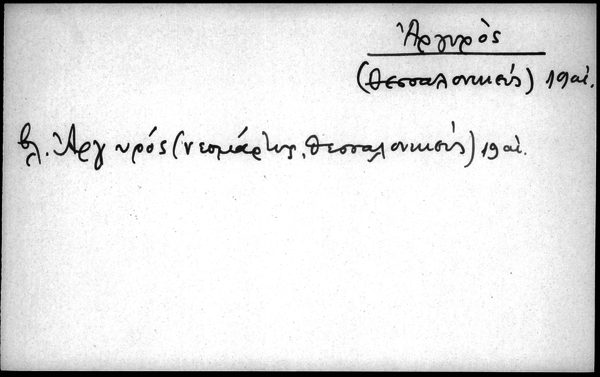 Ἀργυρὸς
(Θεσσαλονικεύς) 19 αἰ.
βλ. Ἀργυρός (νεομάρτυς, Θεσσαλονικεύς) 19 αἰ.